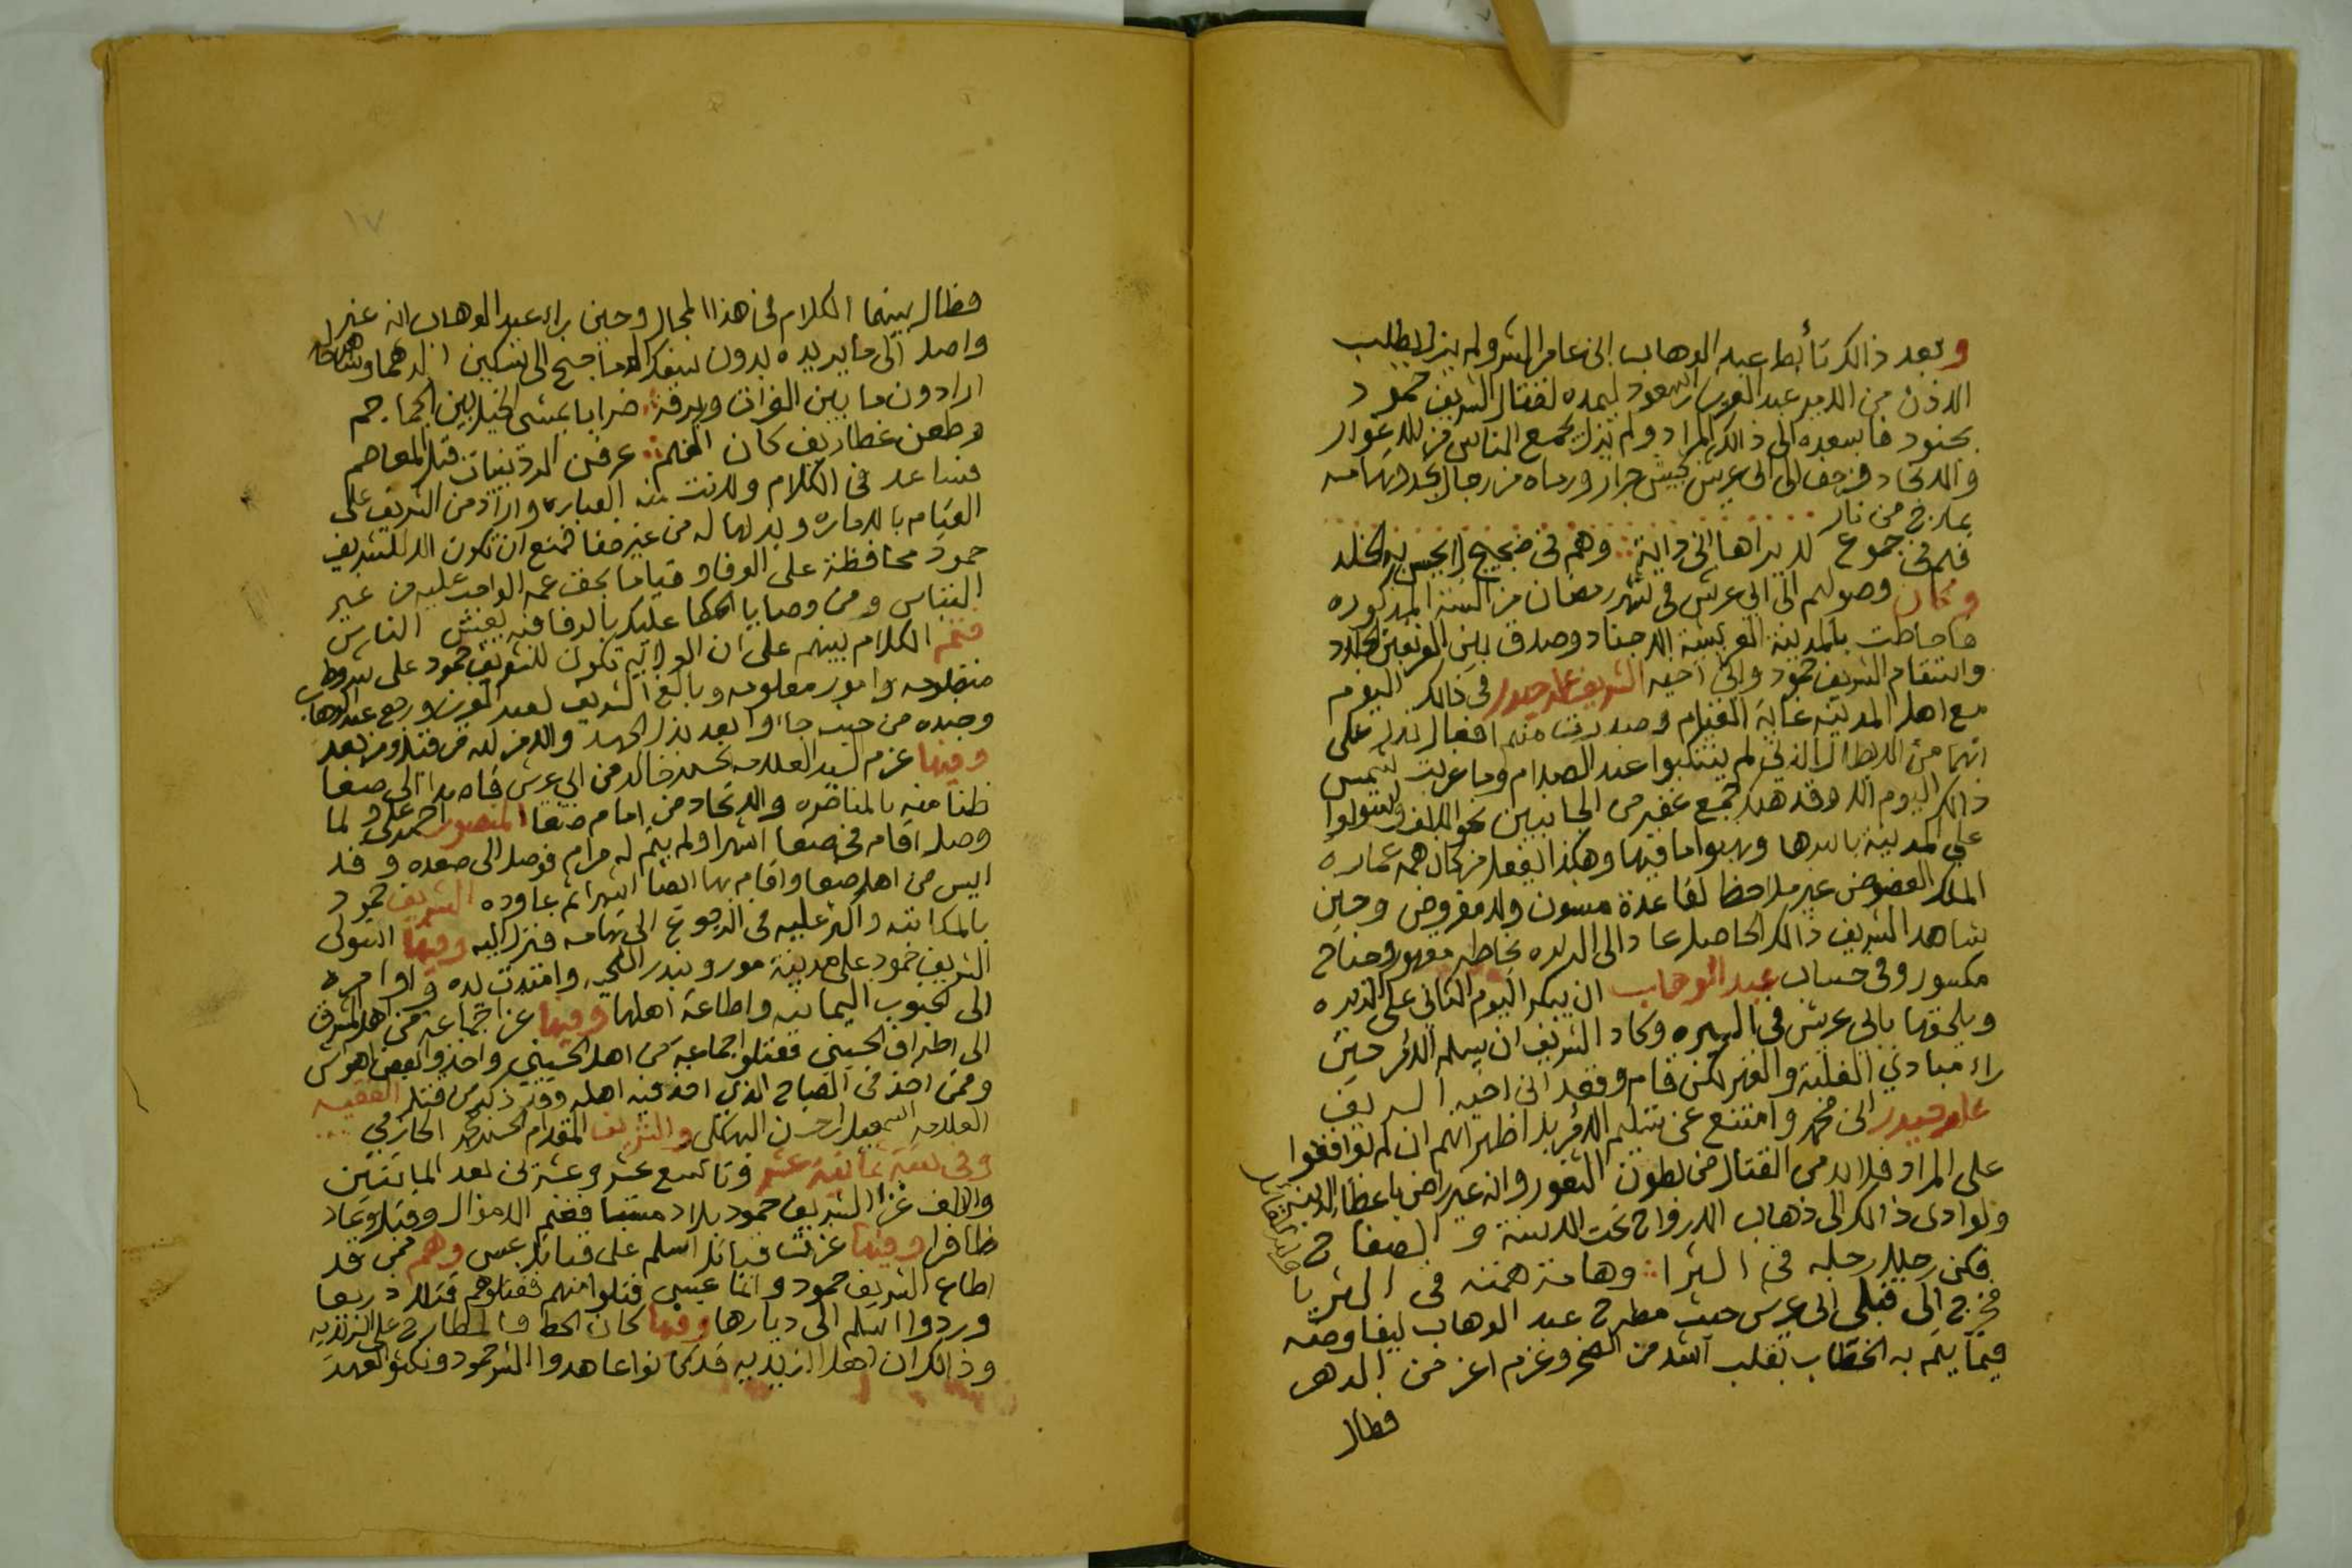 وبعد ذالك تأبط عبد الوهاب الى عامر الشر ولم يزل يطلب
الاذن من الامير عبد العزيز السعود ليمده لقتال الشريف حمود
بجنود فاسعده الى ذالك المراد ولم يزل يجمع الناس من الاغوار
والانجاد فزحف الى ابي عريش بجيش جرار ورماه من رجال نجد وتهامه
بمارج من نار
فلم في جموع لا يراها وهم في ضجيج
وكان وصولهم الى ابي عريش في شهر رمضان من السنة المذكوره
فاحاطت بالمدينة العريشية الاجناد وصدق بين الفريقين الجلاد
واستقام الشريف حمود وابن اخيه الشريف علي حيدر في ذالك اليوم
مع اهل المدينه غاية القيام وصدرت منهم افعال تدل على
انهما من الابطال الذين لم ينكبوا عند الصدام وما غربت شمس
ذالك اليوم الا وقد هلك جمع غفير من الجانبين نحو الالف واستولوا
على المدينة باسرها ونهبوا ما فيها وهكذا يفعل من كان همه عمارة
الملك العضوض غير ملاحظا لقاعدة مسنون ولا مفروض وحين
شاهد الشريف ذالك الحاصل عاد الى الديره بخاطر مقهور وجناح
مكسور وفي حساب عبد الوهاب ان يبكر اليوم الثاني على الديره
ويلحقها بابي عريش في السيره وكاد الشريف ان يسلم الامر حين
راء مبادي الغلبة والقهر لكن قام وقعد ابن اخيه الشريف
علي حيدر ابن محمد وامتنع عن تسليم الامر بل اظهر لهم ان لم توافقوا
على المراد فلا بد من القتال من بطون الثغور وانه غير راض باعطاء الدنيه
ولو ادى ذالك الى ذهاب الارواح تحت الاسنة و الصفاح
فكن رجلا رجله في الثرا وهامة همته في الثريا
فخرج الى قبلي ابي عريش حيث مطرح عبد الوهاب ليفاوضه
فيما يلم به الخطاب بقلب اشد من الصخر وعزم اعز من الدهر
فطال
١٧
فطال بينهما الكلام في هذا المجال وحين راء عبد الوهاب انه غير
واصل الى ما يريده بدون سفك الدما جنح الى تسكين الدهما
ارادون ما بين الفرات وبرقة ضرابا يمشي الخيل بين الجماجم
وطعن غطاريف كان اكفهم عرفن الردينيات قبل المعاصم
فساعد في الكلام ولانت منه العباره واراد من الشريف علي
القيام بالاماره وبذلها له من غير جفا فمنع ان تكون الا للشريف
حمود محافظة على الوفا وقياما بحق عمه الواجب عليه من غير
التباس ومن وصايا الحكما عليك بالوفا فبه يعيش الناس
فتم الكلام بينهم على ان الولاية تكون للشريف حمود على شروط
منظومه وامور معلومه وبايع الشريف لعبد العزيز ورجع عبد الوهاب
وجنده من حيث جاؤا بعد بذل الجهد والامر لله من قبل ومن بعد
وفيها عزم السيد العلامه الحسن خالد من ابي عريش قاصدا الى صنعا
ظنا منه بالمناصره والانجاد من امام صنعا المنصور علي ولما
وصل اقام في صنعا اشهرا ولم يتم له مرام فوصل الى صعده وقد
ايس من اهل صنعا واقام بها ايضا اشهرا ثم عاوده الشريف حمود
بالمكاتبه واكثر عليه في الرجوع الى تهامه فنزل اليه وفيها استولى
الشريف حمود على مدينة مور وبندر اللحيه وامتدت يده واوامره
الى الجنوب اليمانيه واطاعة اهلها وفيها غزا جماعه من اهل الشرق
الى اطراف الحسيني فقتلوا جماعه من اهل الحسيني واخذوا بعض
وممن اخذ في الصباح الذي اخذ فيه اهله وقد ذكر من قتل الفقيه
العلامه اسمعيل البهكلي والشريف المقدام الحسن محمد الحازمي
وفي سنة ثمانية عشر وتاسع عشر وعشرين بعد المائتين
والالف غزا الشريف حمود بلاد فغنم الاموال وقتل وعاد
ظافرا وفيها غزت قبائل اسلم على قبائل عبس وهم ممن قد
اطاع الشريف حمود واما عبس قتلوا منهم فقتلوهم قتلا ذريعا
وردوا اسلم الى ديارها وفيها كان الحط والمطارح على الزيديه
وذالك ان اهل الزيديه قد كانوا عاهدوا الشريف حمود ونكثوا العهد